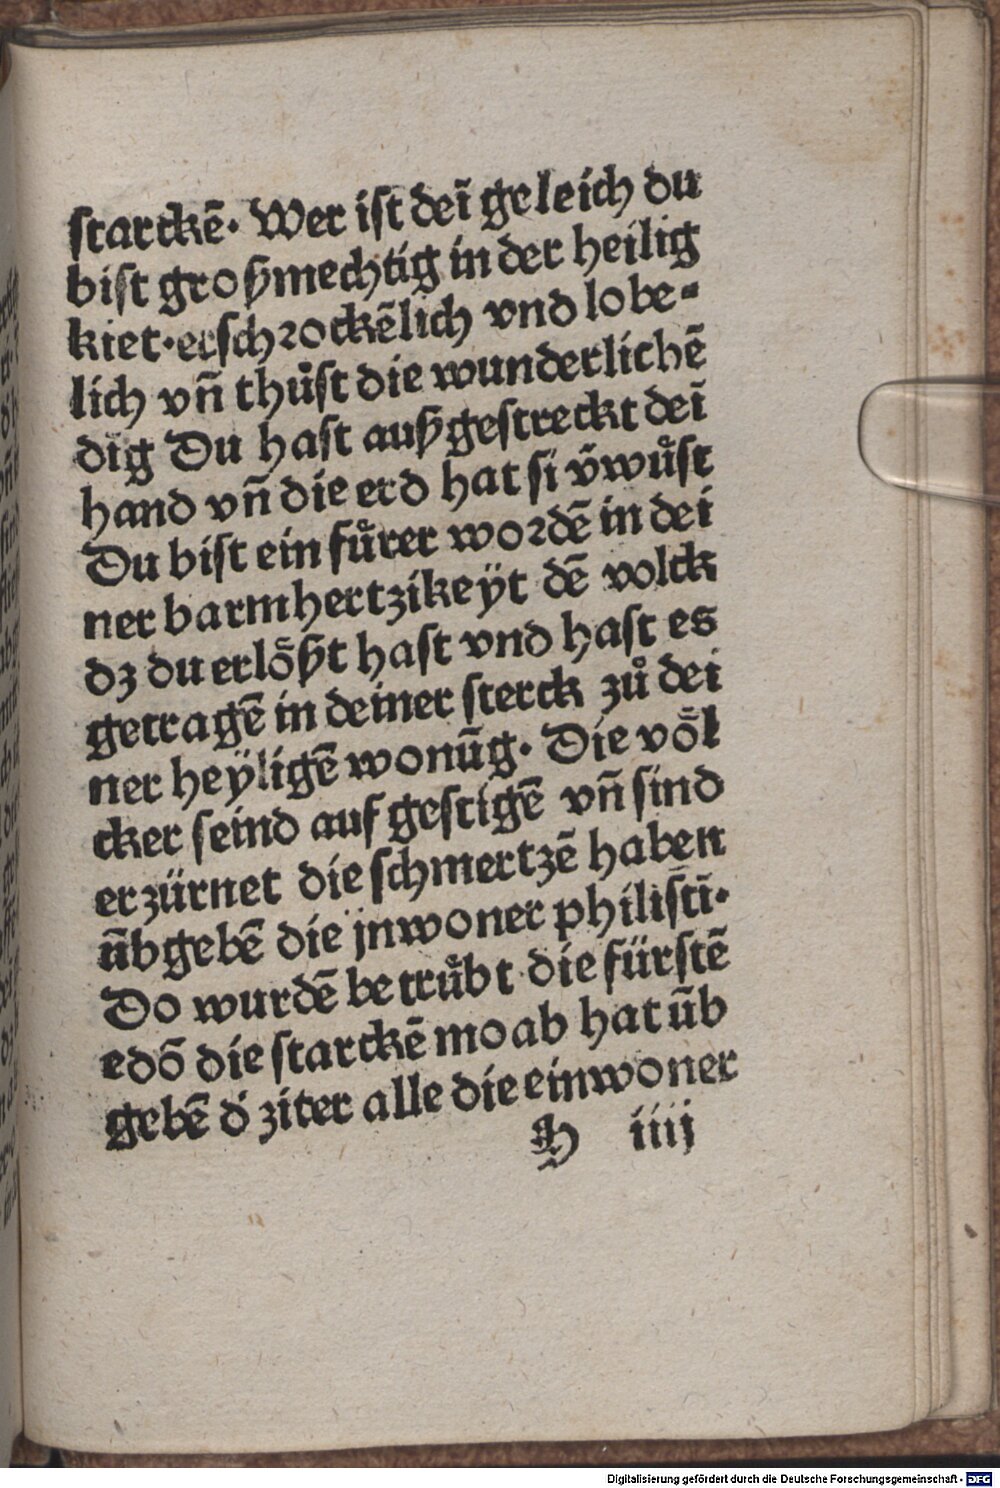 starckē. Wer ist deī geleich du
bist groſzmechtig in der heilig
kiet. erschrockēlich vnd lobe-
lich vñ thůst die wunderlichē
dīg Du hast auſzgestreckt deī
hand vñ die erd hat si v̄wůst
Du bist ein fůrer wordē in dei
ner barmhertzikeÿt dē volck
dz du erlöſzt hast vnd hast es
getragē in deiner sterck zů dei
ner heÿligē wonūg. Die völ
cker seind auf gestigē vñ sind
erzürnet die schmertzē haben
ūbgebē die jnwoner philistī.
Do wurdē betrůbt die fürstē
edō die starckē moab hat ūb
gebē d' ziter alle die einwoner
H iiij
Digitalisierung gefördert durch die Deutsche Forschungsgemeinschaft - DFG